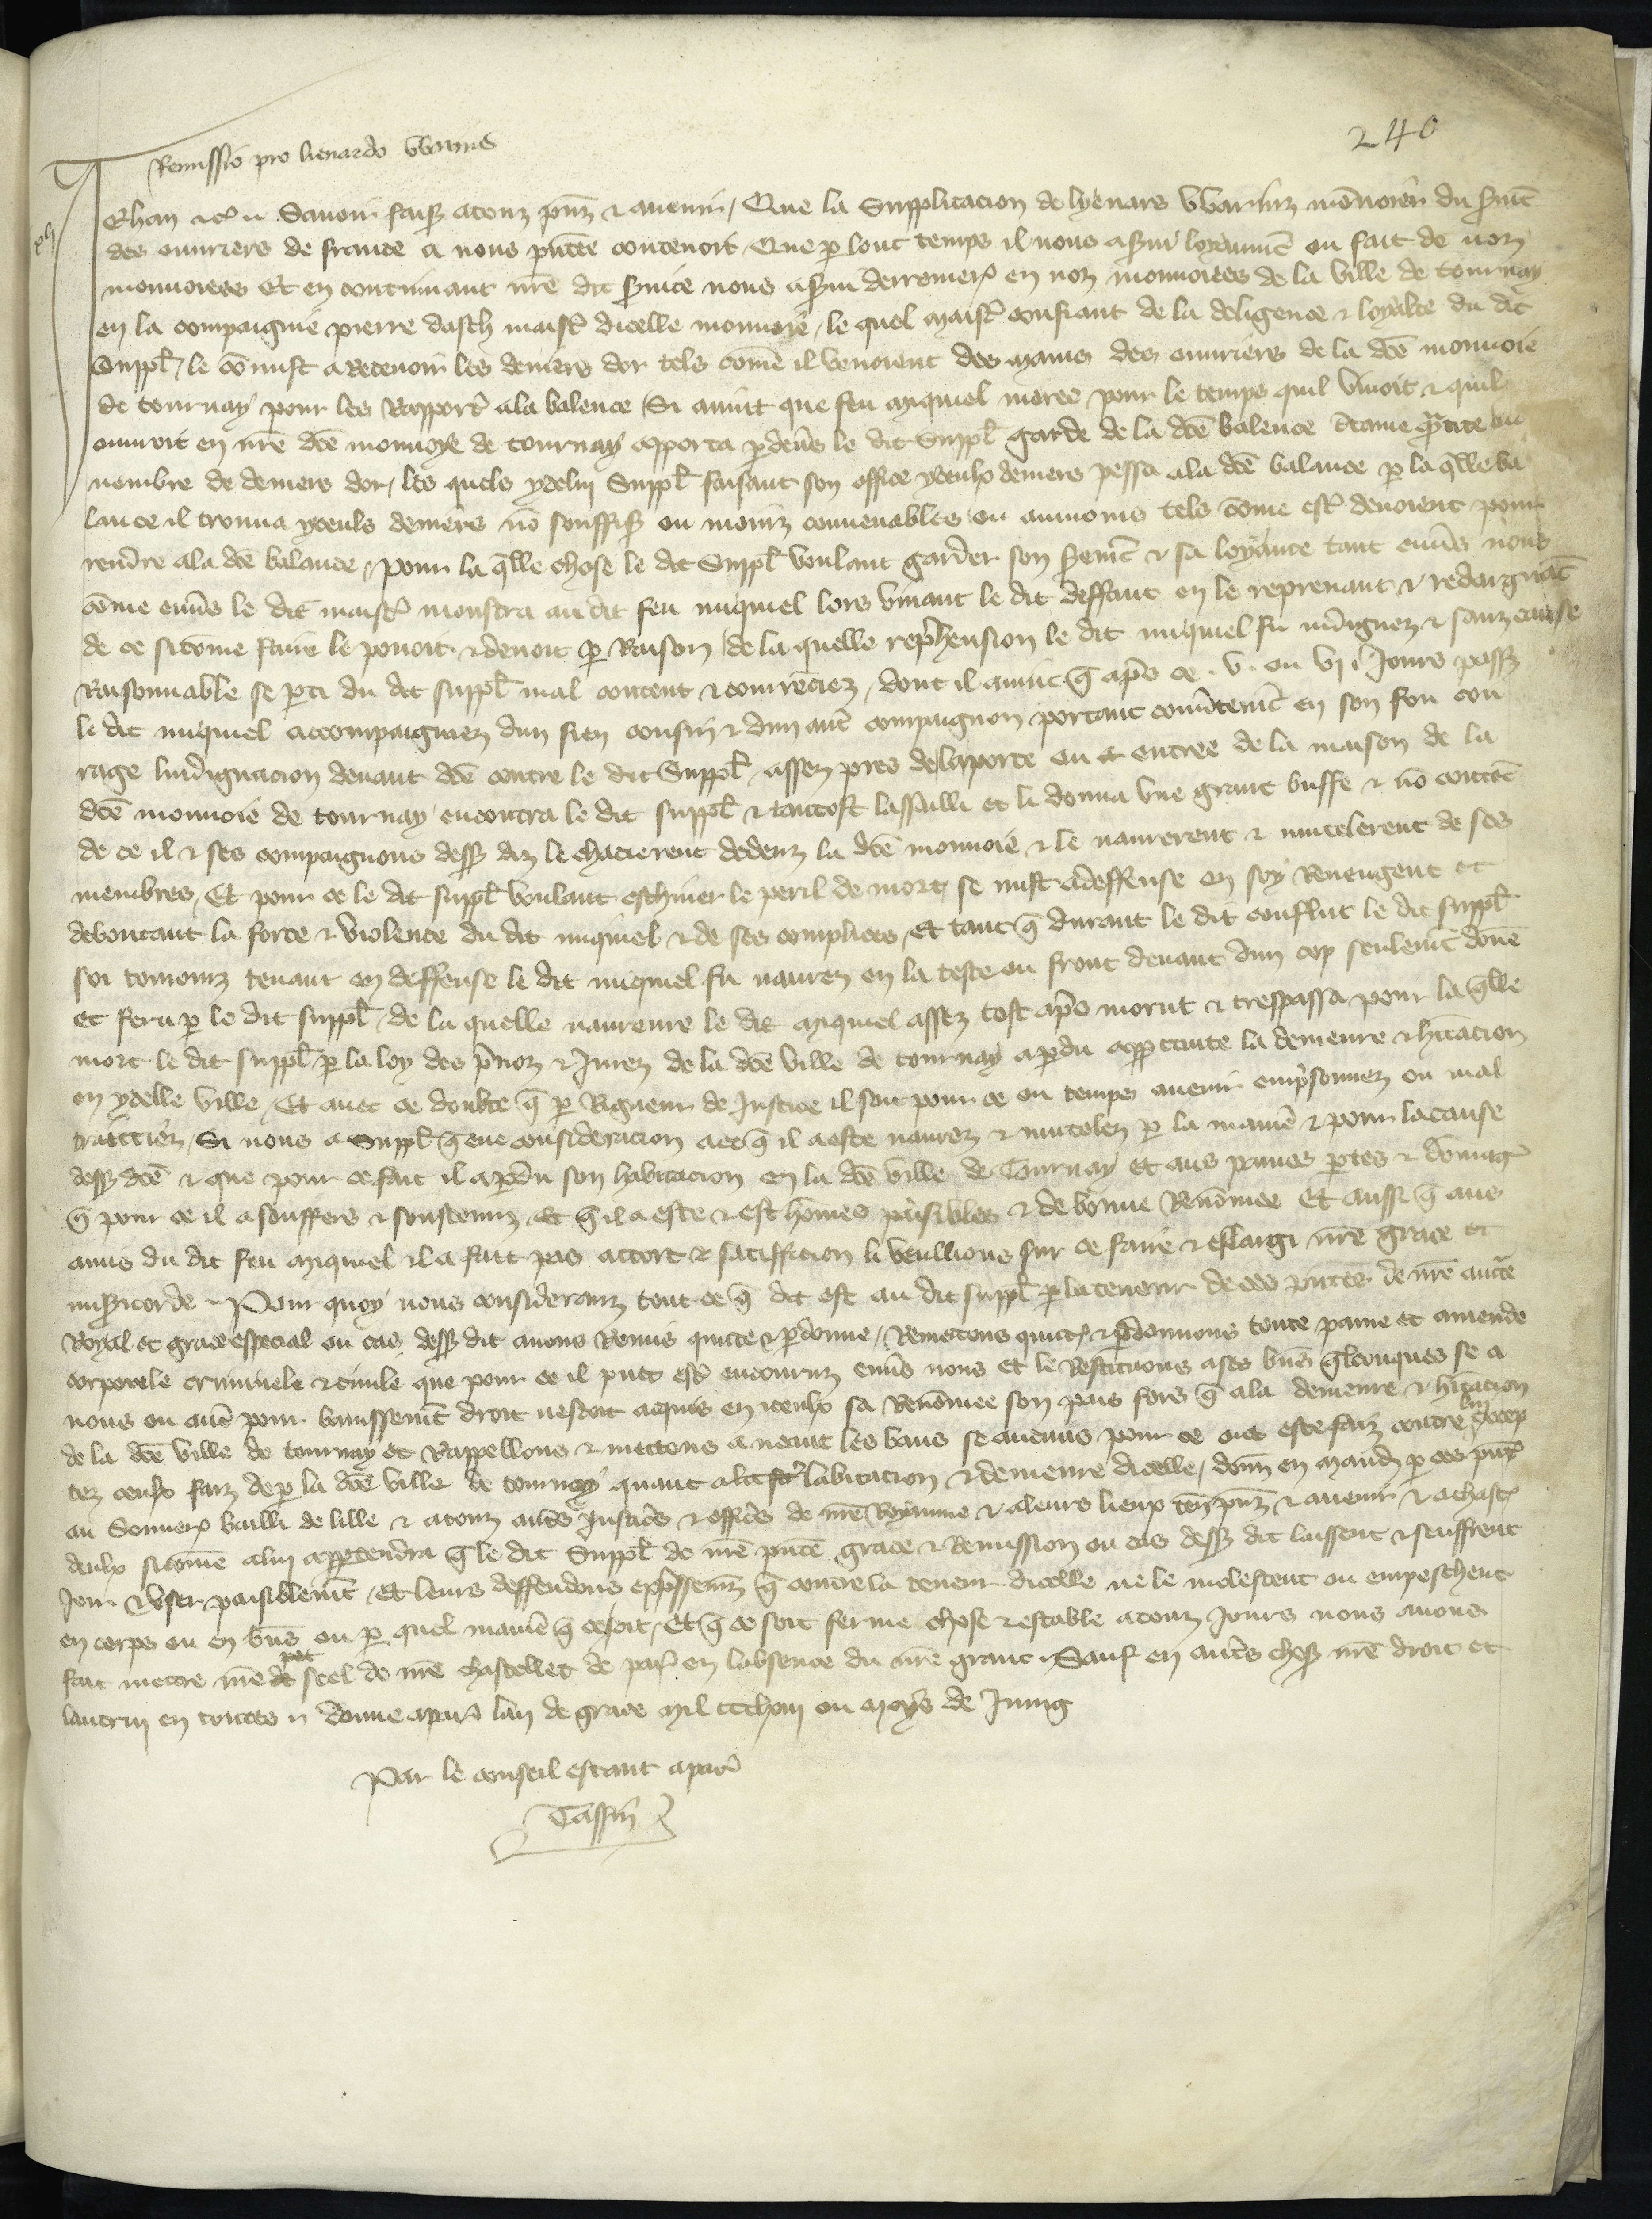 240
Remissio pro lienardo Warins
Jehan &c. Savoir faisõs a touz pñz & avenir / Que la Supplicacion de lyenars Wariniz mõnoier du sermt̃
des ouvriers de france a nous pñtee contenoit Que p lonc temps il nous a servi loyaumt̃ ou fait de noz
monnoiees Et en continuant nr̃e dit service nous a servi derreniem̃t en noz monnoiees de la ville de tournay
en la compaignie pierre dasch maistr̃ dicelle monnoie / le quel maistr̃ confiant de la deligence & loyalte du dit
Suppl̃ / le cõmist a Recevoir les deniers dor tels com̃e il venoient des mains des ouvriers de la dc̃e monnoie
de tournay pour les Rapporter̃ a la balence / Si avint que feu miquiel moree pour le temps quil vivoit & quil
ouvroit en nr̃e dc̃e monnoye de tournay apporta p devs̃ le dit Suppl̃ garde de la dc̃e balence c̃taine q̃ntite ou
nombre de deniers dor / les quels ycelui Suppl̃ faisant son office yceulx deniers pessa a la dc̃e balance p la q̃lle ba
lance il trouva yceuls deniers nõ souffis̃ ou moinz convenables ou aumoins tels com̃e estr̃ devoient pour
rendre a la dc̃e balance / Pour la q̃lle chose le dit Suppl̃ voulant garder son sermt̃ & sa loyaute tant envs̃ nous
com̃e envs̃ le dit maistr̃ monstra au dit feu miquiel lors vivant le dit deffaut en le reprenant & redarguãt
de ce si com̃e faire le povoit & devoit p Raison / de la quelle rep̃hension le dit miquiel fu indignez & sanz cause
Raisonnable se pti du dit suppl̃ mal content & courrẽciez / dont il avint q̃ ap̃s ce v. ou vj Jours passez
le dit miquiel accompaignie dun sien cousin & dun aut̃ compaignon portant couṽtemt̃ en son fou cou
rage lindignacion devant dc̃e contre le dit Suppl̃ / assez pres de la porte ou et entree de la maison de la
dc̃e monnoie de tournay encontra le dit suppl̃ & tantost lassailli et li donna une grant buffe & nõ contẽt
de ce il & ses compaignons dess̃ diz le chacierent dedenz la dc̃e monnoie & le navrerent & mutelerent de ses
membres / Et pour ce le dit suppl̃ voulant eschiver le peril de mort se mist a deffense en soy Revengent et
deboutant la force & violence du dit miquiel & de ses complices / Et tant q̃ durant le dit conflict le dit suppl̃
soi tourjourz tenant en deffense le dit miquiel fu navrez en la teste ou front devant dun cop seulemt̃ donẽ
et feru p le dit suppl̃ / de la quelle navreure le dit miquiel assez tost ap̃s morut & trespassa pour la q̃lle
mort le dit suppl̃ p la loy des p̃voz & Jurez de la dc̃e ville de tournay a p̃du a p̃petuite la demeure & hitacion
en ycelle ville / Et avec ce doubte q̃ p Rigueur de Justice il soit pour ce ou temps avenir emp̃sonnez ou mal
traittiez / Si nous a Suppl̃ q̃ eue consideracion a ce q̃ il a este navrez & mutelez p la manie͂ & pour la cause
dess̃ dc̃e & que pour ce fait il a p̃du son habitacion en la dc̃e ville de Tournay et aus painnes p̃tes & dõmagẽ
q̃ pour ce il a souffers & soustenuz / Et q̃ il a este & est hom̃es paisibles & de bonne Renõmee Et aussi q̃ aus
amis du dit feu miquiel il a fait pais accort & satiffacion li veullions sur ce faire & eslargi nr̃e grace et
mis̃icorde / Pour quoy nous consideranz tout ce q̃ dit est au dit suppl̃ p la teneur de ces pñtes de nr̃e auct̃e
Royal et grace especial ou cas dess̃ dit avons Remis quitte & p̃donne / Remettons quictõs & p̃donnons toute paine et amende
corporele criminele & civile que pour ce il puet estr̃ encouruz envs̃ nous et le Restituons a ses biens q̃lconques se a
nous ou aut̃ pour banissemt̃ droit nestoit acquis en iceulx sa Renõmee son pais fors q̃ a la demeure & hitacion
de la dc̃e ville de tournay et Rappellons & mettons a neant les bans se aucuns pour ce ont este faiz contre lui excep
tez ceulx faiz de p la dc̃e ville de tournay quant a labitacion & demeure dicelle / donn̄ en mand̃ p ces pñtes
au Souverain bailli de lille & a touz aut̃s Justic̃s & offic̃s de nr̃e Royaume & a leurs lieux teñ pñz & avenir & a chasc̃
deulx si com̃e a lui app̃tendra q̃ le dit Suppl̃ de nr̃e pñte grace & Remission ou cas dess̃ dit laissent & seuffrent
Joir & User paisiblemt̃ / Et leurs deffendons exp̃ssemt̃ q̃ contre la teneur dicelle ne le molestent ou empeschent
en corps ou en biens ou p quel manie͂ q̃ ce soit / Et q̃ ce soit ferme chose & estable a touz Jours nous avons
fait mettre nr̃e seel de nr̃e chastellet de par̃ en labsence du nr̃e grant / Sauf en aut̃s chos̃ nr̃e droit et
lautrui en toutes / donne a par̃ lan de grace mil ou moys de Juing
Par le conseil estant a par̃
Tassin